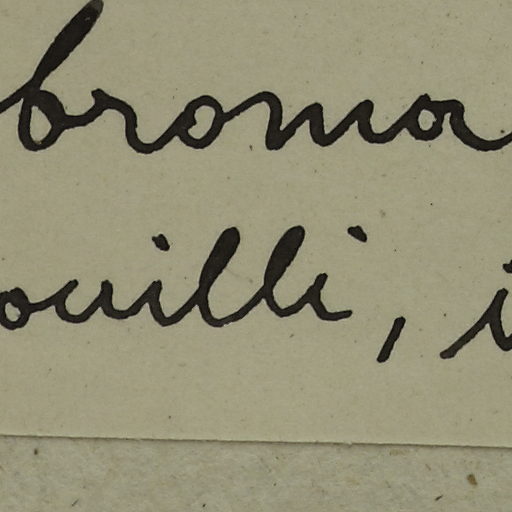 broma
ouilli, i